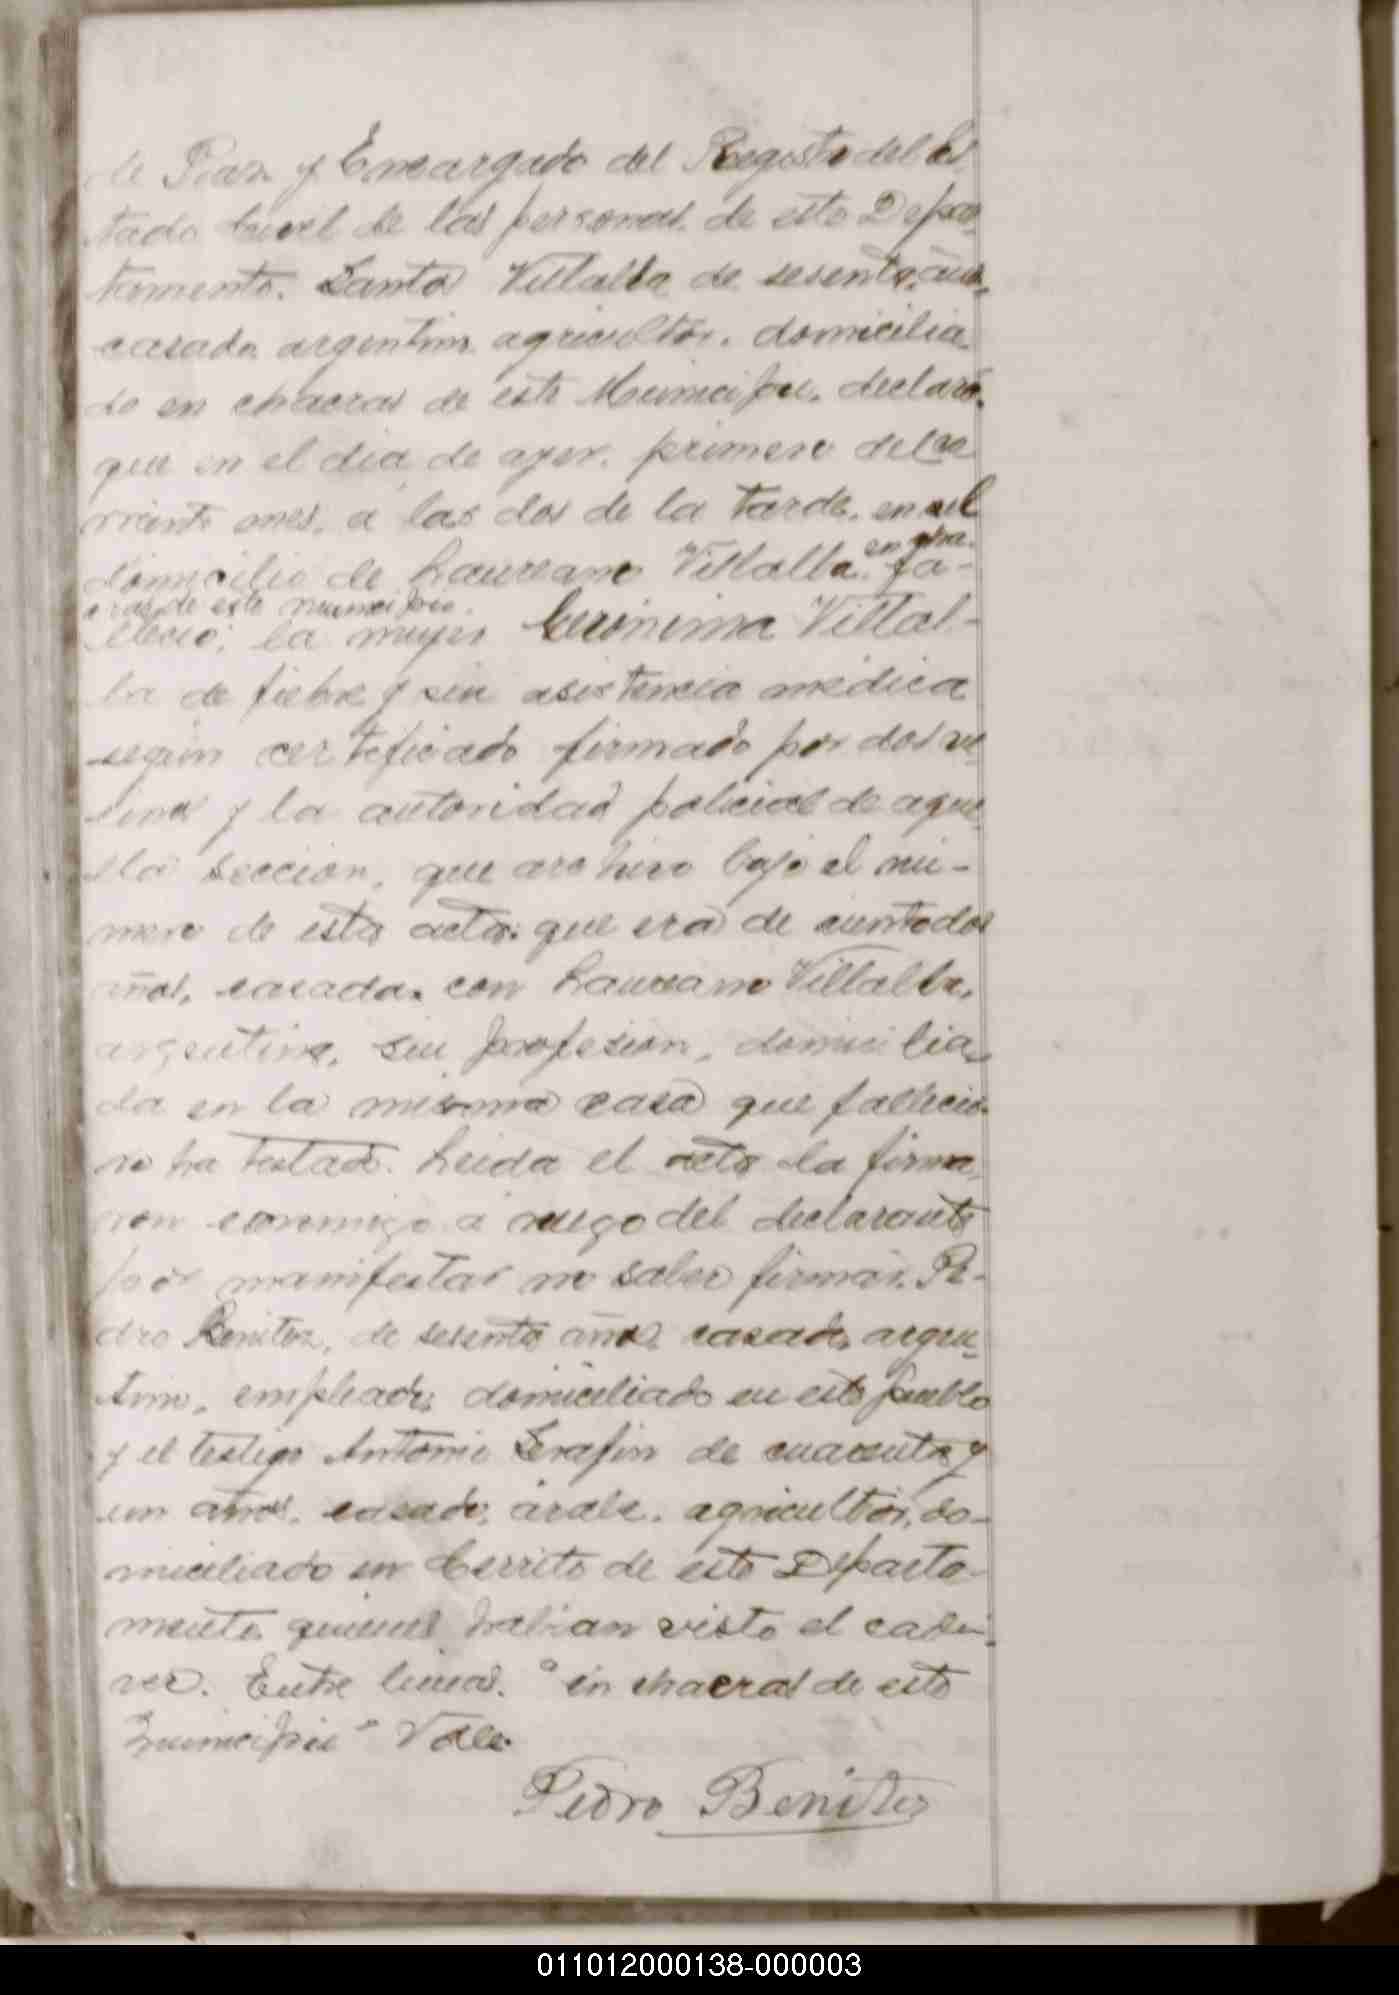 de Paz y Encargado del Registro del Es
tado Civil de las personas de este Depar-
tamento. Santos Villalba de sesenta años
casado argentino agricultor, domicilia
do en chacras de este Municipio, declaró:
que en el dia de ayer, primero del co
rriente mes, a las dos de la tarde, en el
en cha-
domicilio de Laureano Villalba fa-
cras de este municipio.
lleció; la mujer Gerónima Villal-
ba de fiebre y sin asistencia médica
según certificado firmado por dos ve-
cinos y la autoridad policial de aque-
lla seccion, que archivo bajo el nú-
mero de esta acta: que era de dos
años, casada con Laureano Villalba,
argentina, sin profesion, domicilia
da en la misma casa que falleció
no ha testado. Leida el acta la firma
ron conmigo a ruego del declarante
por manifestar no saber firmar. Pe-
dro Benitez, de sesenta años casado, argen-
tino, empleado, domiciliado en este pueblo
y el testigo Antonio Serafin de cuarenta y
un años, casado, árabe, agricultor, do-
miciliado en Cerrito de este Departa-
mento quienes habian visto el cadá-
ver. Entre lineas. "en chacras de este
municipio" Vale.
Pedro Benitez
011012000138-000003